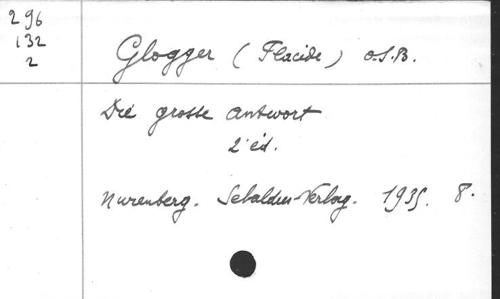 296
132
2
Glogger (Placide) O.S.B.
Die grosse Antwort
2 éd.
Nurenberg. Sebaldus-Verlag. 1935. 8.